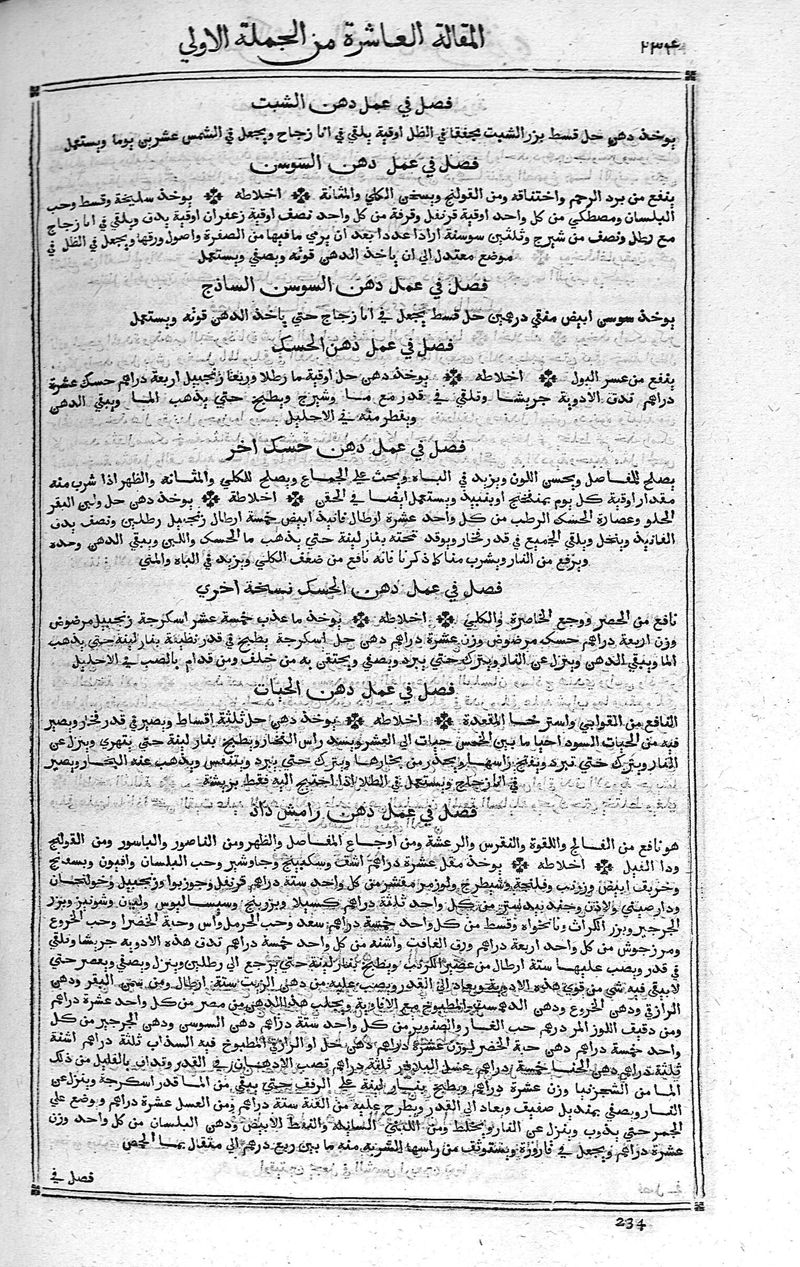 ٢٣٤
المقالة العاشرة من الجملة الاولي
فصل في عمل دهن الشبت
يوخذ دهن حل قسط بزر الشبت مجففا في الظل اوقية يلقي في انا زجاج ويجعل في الشمس عشرين يوما ويستعمل
فصل في عمل دهن السوسن
ينفع من برد الرحم واختناقه ومن القولنج ويسخن الكلي والمثانة اخلاطه يوخذ سليخة وقسط وحب
البلسان ومصطكي من كل واحد اوقية قرنفل وقرفة من كل واحد نصف اوقية زعفران اوقية يدق ويلقي في انا زجاج
مع رطل ونصف من شيرج وثلثين سوسنة ازاذا عددا بعد ان يرمي ما فيها من الصفرة واصول ورقها ويجعل في الظل في
موضع معتدل الي ان ياخذ الدهن قوته ويصفي ويستعمل
فصل في عمل دهن السوسن الساذج
يوخذ سوسن ابيض منقي درهمين حل قسط يجعل في انا زجاج حتي ياخذ الدهن قوته ويستعمل
فصل في عمل دهن الحسك
ينفع من عسر البول اخلاطه يوخذ دهن حل اوقية ما رطلا وربعا زنجبيل اربعة دراهم حسك عشرة
دراهم تدق الادوية جريشا وتلقي في قدر مع ما وشيرج ويطبخ حتي يذهب الما ويبقي الدهن
ويقطر منه في الاحليل
فصل في عمل دهن حسك اخر
يصلح للمفاصل ويحسن اللون ويزيد في الباه ويحث علي الجماع ويصلح للكلي والمثانه والظهر اذا شرب منه
مقدار اوقية كل يوم بمفختج اوبنبيذ ويستعمل ايضا في الحقن اخلاطة يوخذ دهن حل ولبن البقر
الحلو وعصارة الحسك الرطب من كل واحد عشرة ارطال فانيذ ابيض خمسة ارطال زنجبيل رطلين ونصف يدق
الفانيذ وينخل ويلقي الجميع في قدر فخار ويوقد تحته بنار لينة حتي يذهب ما الحسك واللبن ويبقي الدهن وحده
ويرفع من النار ويشرب منه كما ذكرنا فانه نافع من ضعف الكلي ويزيد في الباه والمني
فصل في عمل دهن الحسك نسخة اخري
نافع من الحصر ووجع الخاصرة والكلي اخلاطه يوخذ ما عذب خمسة عشر اسكرجة زنجبيل مرضوض
وزن اربعة دراهم حسك مرضوض وزن عشرة دراهم دهن حل اسكرجة يطبخ في قدر نظيفة بنار لينة حتي يذهب
الما ويبقي الدهن وينزل عن النار ويترك حتي يبرد ويصفي ويحتقن به من خلف ومن قدام بالصب في الاحليل
فصل في عمل دهن الحيات
النافع من القوابي واسترخا المقعدة اخلاطه يوخذ دهن حل ثلثة اقساط ويصير في قدر فخار ويصير
فيه من الحيات السود احيا ما بين الخمس حيات الي العشر ويسد راس الفخار ويطبخ بنار لينة حتي يتهري وينزل عن
النار ويترك حتي تبرد ويفتح راسها ويحذر من بخارها ويترك حتي يبرد ويتنفس ويذهب عنه البخار ويصير
في انا زجاج ويستعمل في الطلا اذا احتيج اليه فقط بريشة
فصل في عمل دهن رامش داذ
هو نافع من الفالج واللقوة والنقرس والرعشة ومن اوجاع المفاصل والظهر ومن الناصور والباسور ومن القولنج
ودا الفيل اخلاطه يوخذ مقل عشرة دراهم اشق وسكبينج وجاوشير وحب البلسان وافيون وبسفايج
وخربق ابيض وزرنب وفلنجة وشيطرج ولوز مر مقشر من كل واحد ستة دراهم قرنفل وجوزبوا وزنجبيل وخولنجان
ودارصيني ولاذن وجندبيدستر من كل واحد ثلثة دراهم كسيلا وبزربنج وسيساليوس ولبان وشونيز وبزر
الجرجير وبزر الكراث ونانخواه وقسط من كل واحد خمسة دراهم سعد وحب الحرمل واس وحبة الخضرا وحب الخروع
ومرزجوش من كل واحد اربعة دراهم ورق الغافت واشنه من كل واحد خمسة دراهم تدق هذه الادويه جريشا وتلقي
في قدر ويصب عليها ستة ارطال من عصير الكرنب ويطبخ بنار لينة حتي يرجع الي رطلين وينزل ويصفي ويعصر حتي
لا يبقي فيه شي من قوي هذه الادوية ويعاد الي القدر ويصب عليه من دهن الزيت ستة ارطال ومن سمن البقر ودهن
الرازقي ودهن الخروع ودهن المطبوخ مع الافاوية ويجلب هذا الدهن من مصر من كل واحد عشرة دراهم
ومن دقيق اللوز المر درهم حب الغار والصنوبر من كل واحد ستة دراهم دهن السوسن ودهن الجرجير من كل
واحد خمسة دراهم دهن حبة الخضرا وزن عشرة دراهم دهن حل او الرازقي المطبوخ فيه السذاب ثلثة دراهم اشنة
ثلثة دراهم دهن الحنا خمسة دراهم عسل البلاذر ثلثة دراهم تصب الادهان في القدر وتداف بالقليل من ذلك
الما من الشجرنيا وزن عشرة دراهم ويطبخ بنار لينة علي الرفق حتي يبقي من الما قدر اسكرجة وينزل عن
النار ويصفي بمنديل صفيف ويعاد الي القدر ويطرح عليه من القنة ستة دراهم ومن العسل عشرة دراهم ويوضع علي
الجمر حتي يذوب وينزل عن النار ويخلط ومن اللبني السائلة والنفط الابيض ودهن البلسان من كل واحد وزن
عشرة دراهم ويجعل في قارورة ويستوثق من راسها الشربه منه ما بين ربع درهم الي مثقال بما الحمص
فصل في
234